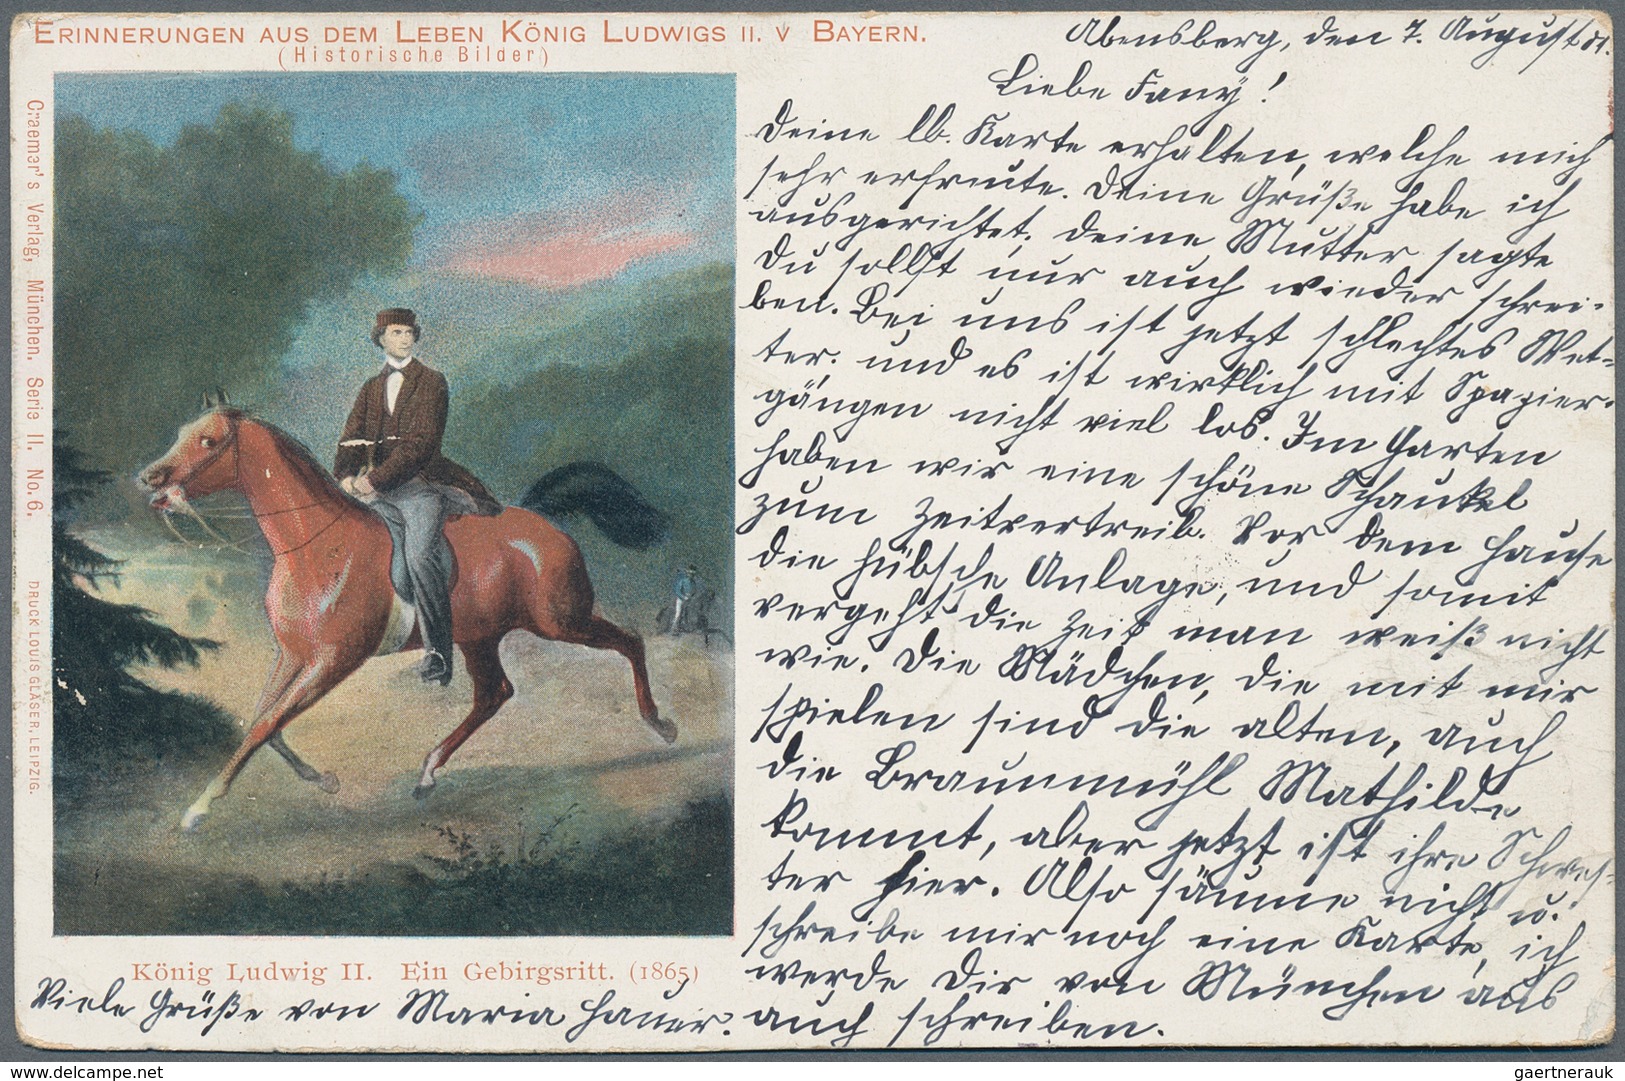 ERINNERUNGEN AUS DEM LEBEN KÖNIG LUDWIGS II. V BAYERN.
(Historische Bilder)
Craemer's Verlag, München. Serie II. No. 6.
DRUCK LOUIS GLÄSER, LEIPZIG.
König Ludwig II. Ein Gebirgsritt. (1865)
Viele Grüße von Maria Hauer.
Abensberg, den 7. August 01.
Liebe Fany!
Deine lb. Karte erhalten, welche mich
sehr erfreute. Deine Grüße habe ich
ausgerichtet; deine Mutter sagte
Du sollst nur auch wieder schrei-
ben. Bei uns ist jetzt schlechtes Wet-
ter. und es ist wirklich mit Spazier-
gängen nicht viel los. Im Garten
haben wir eine schöne Schaukel
zum Zeitvertreib. Vor dem Hause
die hübsche Anlage, und somit
vergeht die Zeit man weiß nicht
wie. Die Mädchen, die mit mir
spielen sind die alten, auch
die Braunmühl Mathilde
kommt, aber jetzt ist ihre Schwes-
ter hier. Also säume nicht u.
schreibe mir noch eine Karte, ich
werde Dir von München aus
auch schreiben.
www.delcampe.net
gaertnerauk